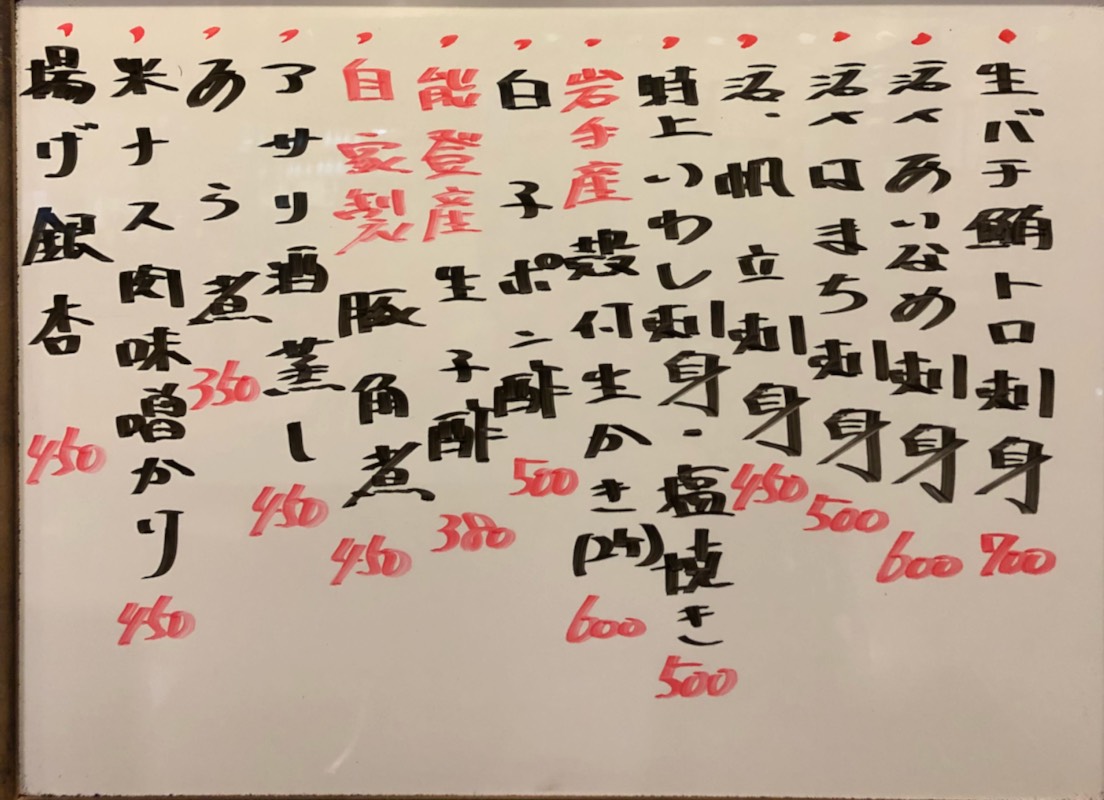 生バチ鮪トロ刺身 700
活〆あいなめ刺身 600
活〆はまち刺身 500
活帆立刺身 450
特上いわし刺身・塩焼き 500
岩手産殻付生かき(2ケ) 600
白子ポン酢 500
能登産生子酢 380
自家製豚角煮 450
アサリ酒蒸し 450
あら煮 350
米ナス肉味噌かけ 450
揚げ銀杏 450